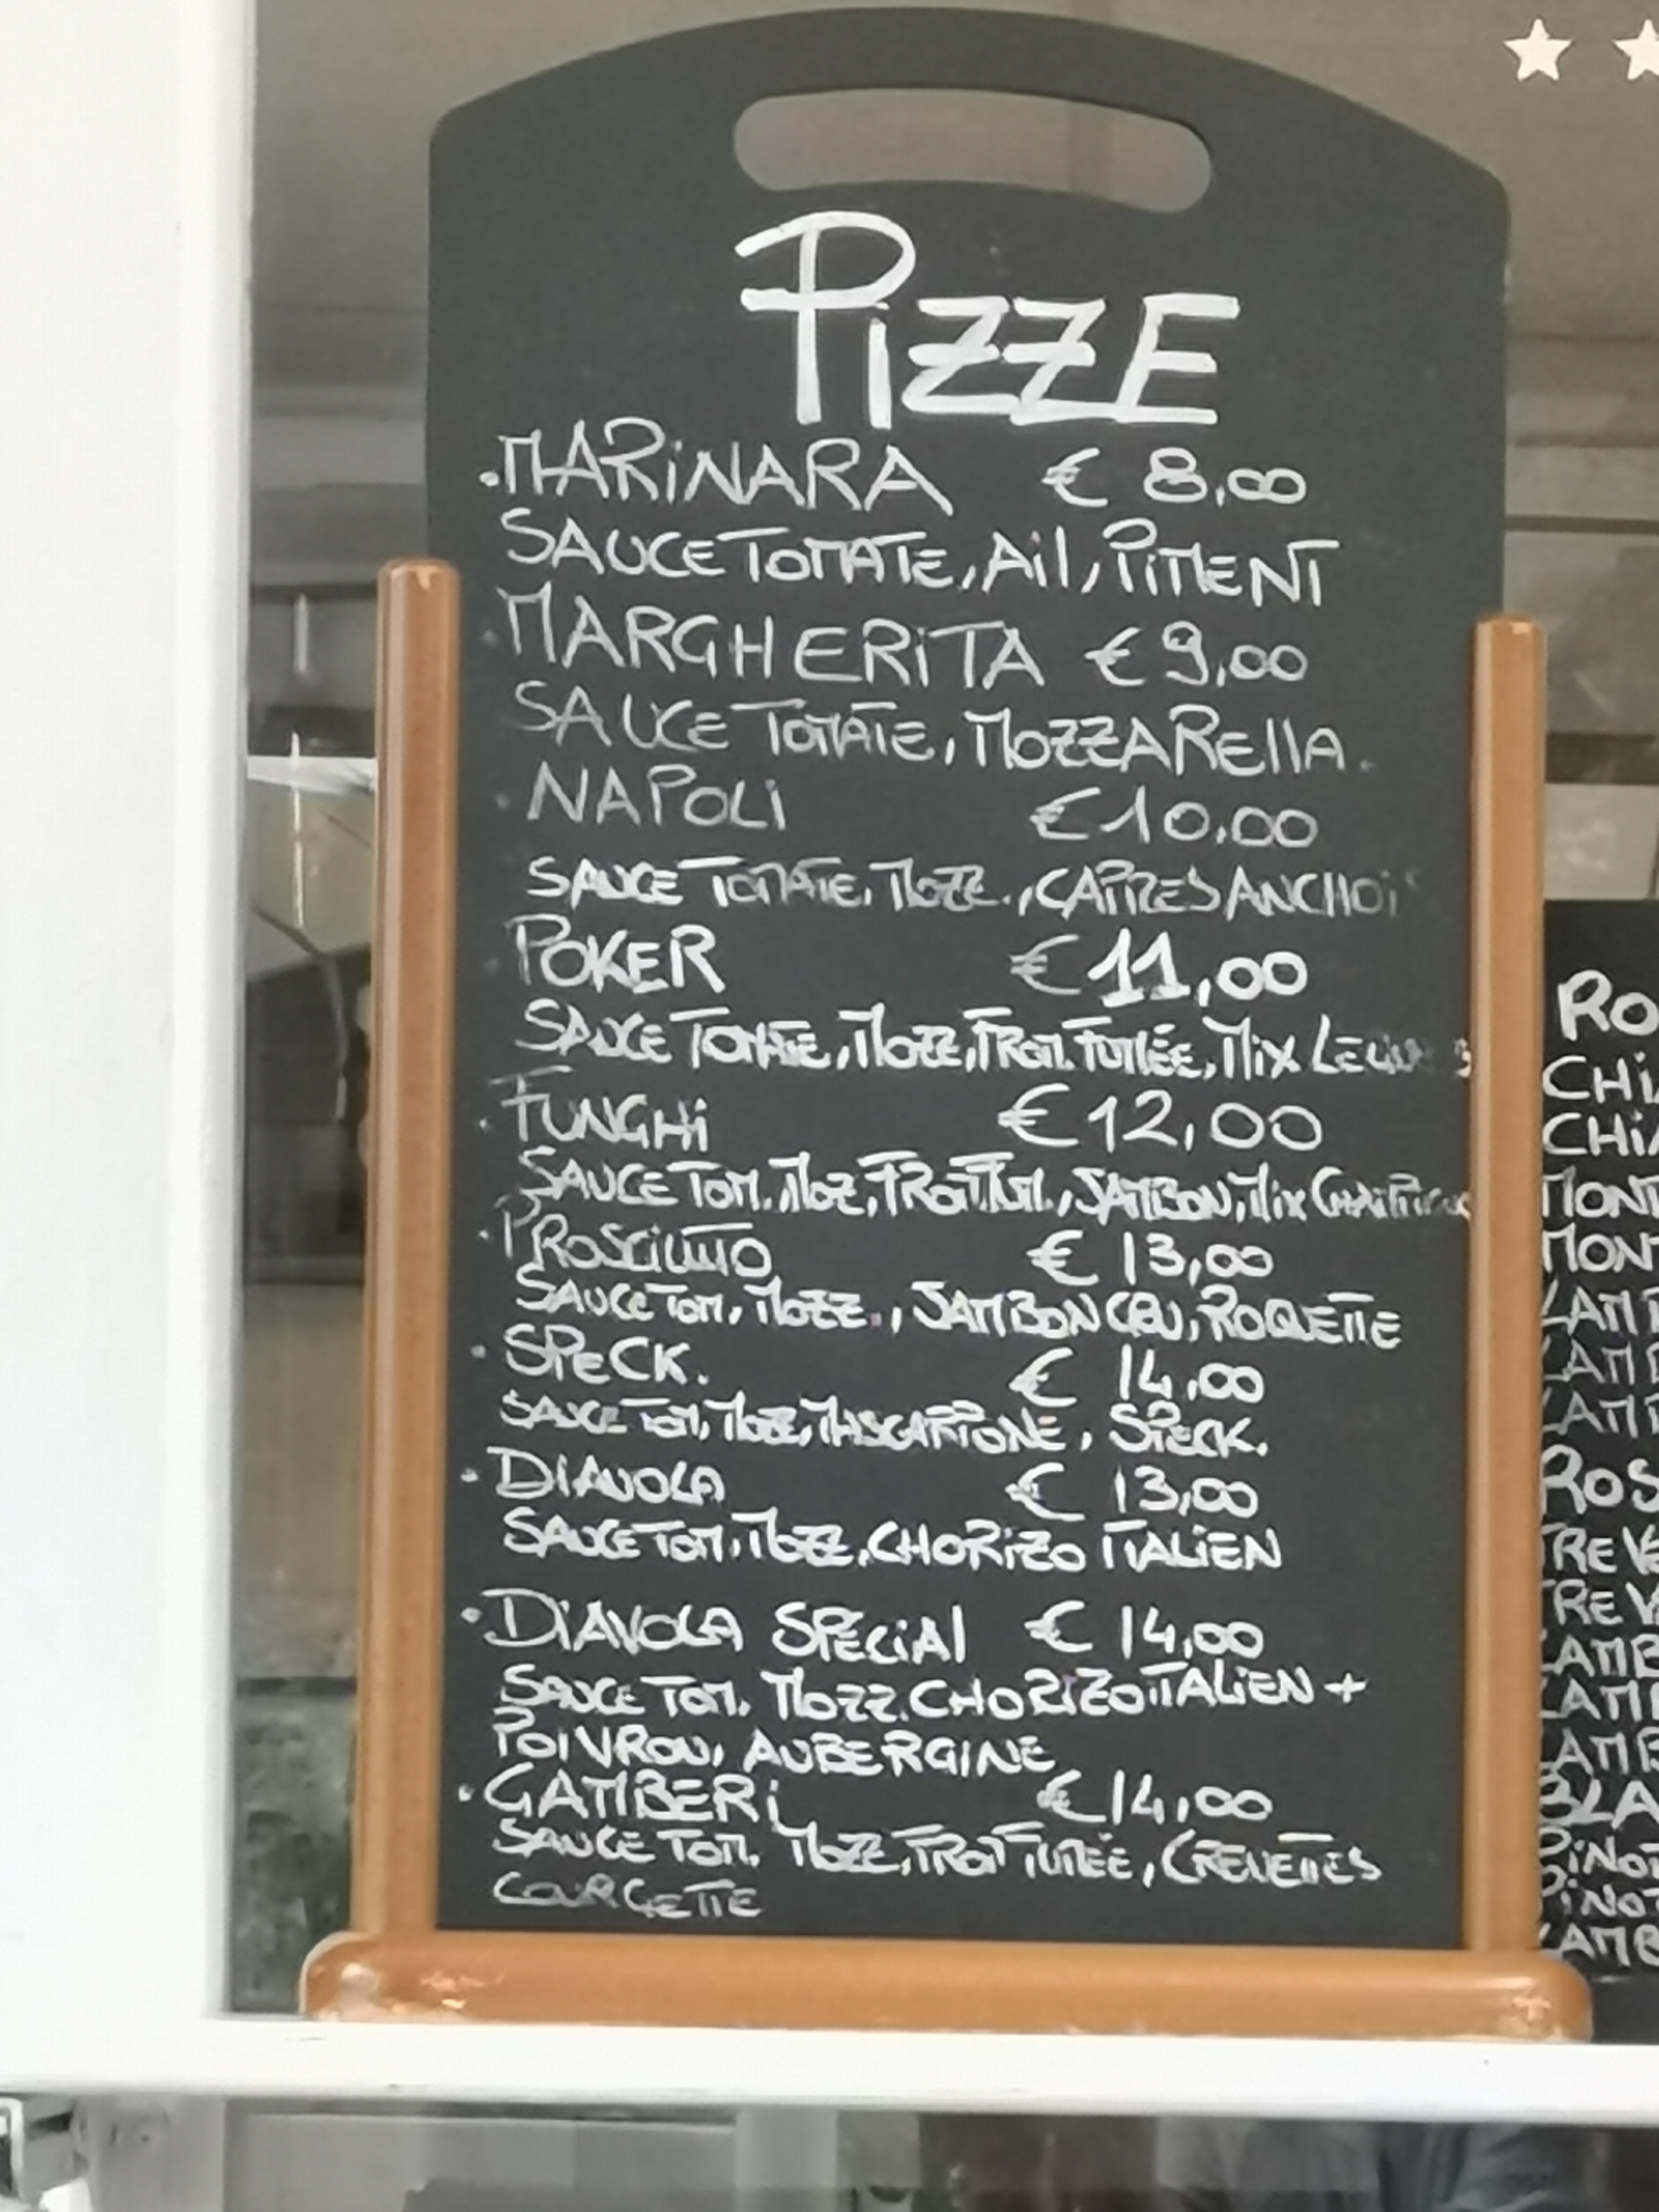 PiZZE
.MARiNARA € 8,00
SAUCE TOMATE, Ail, PiMENT
. MARGHERiTA € 9,00
SAUCE TOMATE, MOZZAREllA.
. NAPOLi € 10,00
SAUCE TOMATE, MOZZ., CAPRES ANCHOiS
. POKER € 11,00
SAUCE TOMATE, MOZZ, FROM. FUMÉE, Mix LEGUMES
. FUNGHi € 12,00
SAUCE TOM. MOZ, FROM FUM., JAMBON, Mix
. PROSCiUTTO € 13,00
SAUCE TOM, MOZZ., JAMBON CRU, ROQUETTE
. SPECK. € 14,00
SAUCE TOM, MOZZ, MASCARPONE, SPECK.
. DIAVOLA € 13,00
SAUCE TOM, MOZZ, CHORiZO ITALiEN
. DiAVOLA SPECiAl € 14,00
SAUCE TOM. MOZZ. CHORiZO iTALiEN +
POIVRON, AUBERGINE
. GAMBERi € 14,00
SAUCE TOM. MOZZ, FROM FUMÉE, CREVETTES
COURGETTE
RO
CHi
CHiA
MONT
MONT
LAM
LAM
LAM
ROS
TRE VE
TRE V
LAMB
LAMB
LAMB
BLA
PiNOT
PiNOT
LAMB